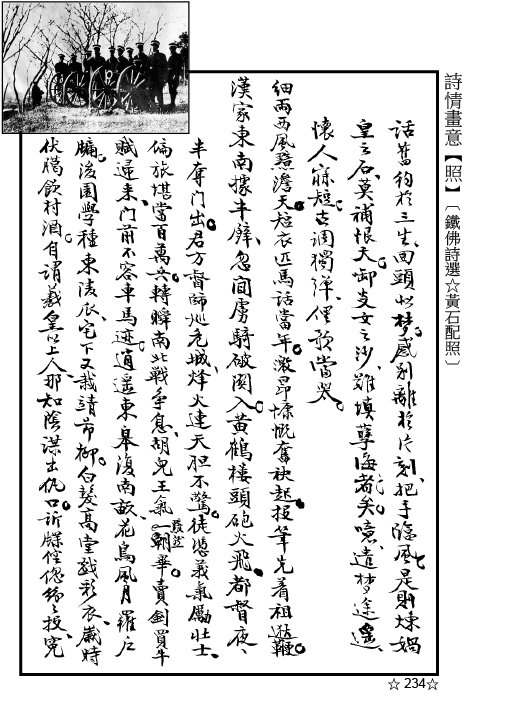 詩情畫意【照】〔鐵佛詩選☆黃石配照〕
話舊約於三生、回頭如夢。感別離於片刻、把手臨風。是則煉媧
皇之石、莫補恨天。啣支女之沙、難填孽海者矣。噫、遣梦途遥、
懷人寐短。古調獨彈、俚歌當哭。
細雨西風黯澹天。短衣匹馬話當年。激昂慷慨奮袂起。投筆先着祖逖鞭。
漢家東南據半壁、忽聞虜騎破関入。黃鶴樓頭砲火飛。都督夜
半奪门出。君方督師处危城、烽火連天胆不驚。徒憑義氣勵壯士、
偏旅堪當百萬兵。轉瞬南北戰爭息、胡兒王氣一朝畢。賣劍買牛
賦歸来、门前不容車馬迹。逍遥東皋復南畝、花鳥風月羅户
牖。後園學種東陵瓜、宅下又栽靖节柳。白髮高堂戲彩衣、歲時
伏臘飲村酒。自謂羲皇以上人、那知陰谋出仇口。訴牒倥偬紛之投、冤
☆ 234☆